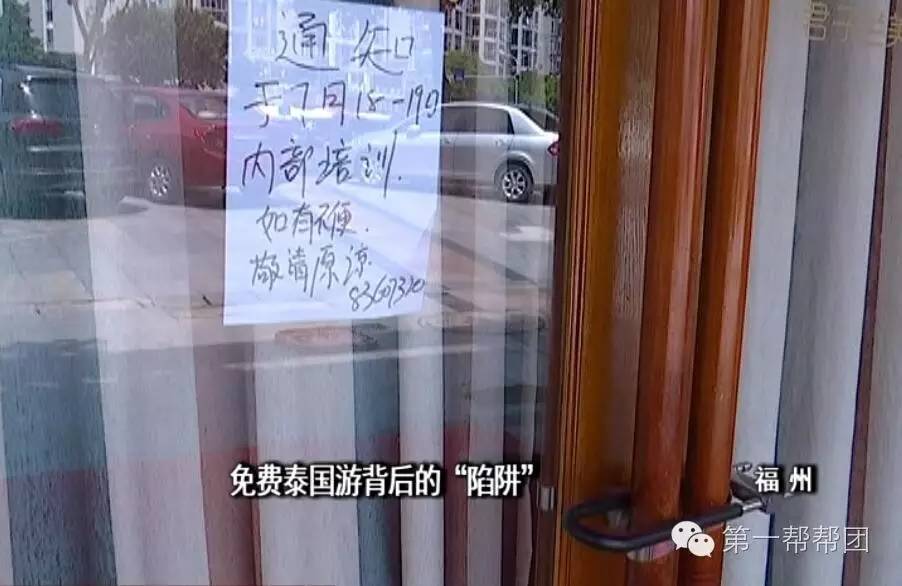 通知
于7月18-19日
内部培训.
如有不便.
敬请原谅
83607320
免费泰国游背后的“陷阱”
福州
第一帮帮团